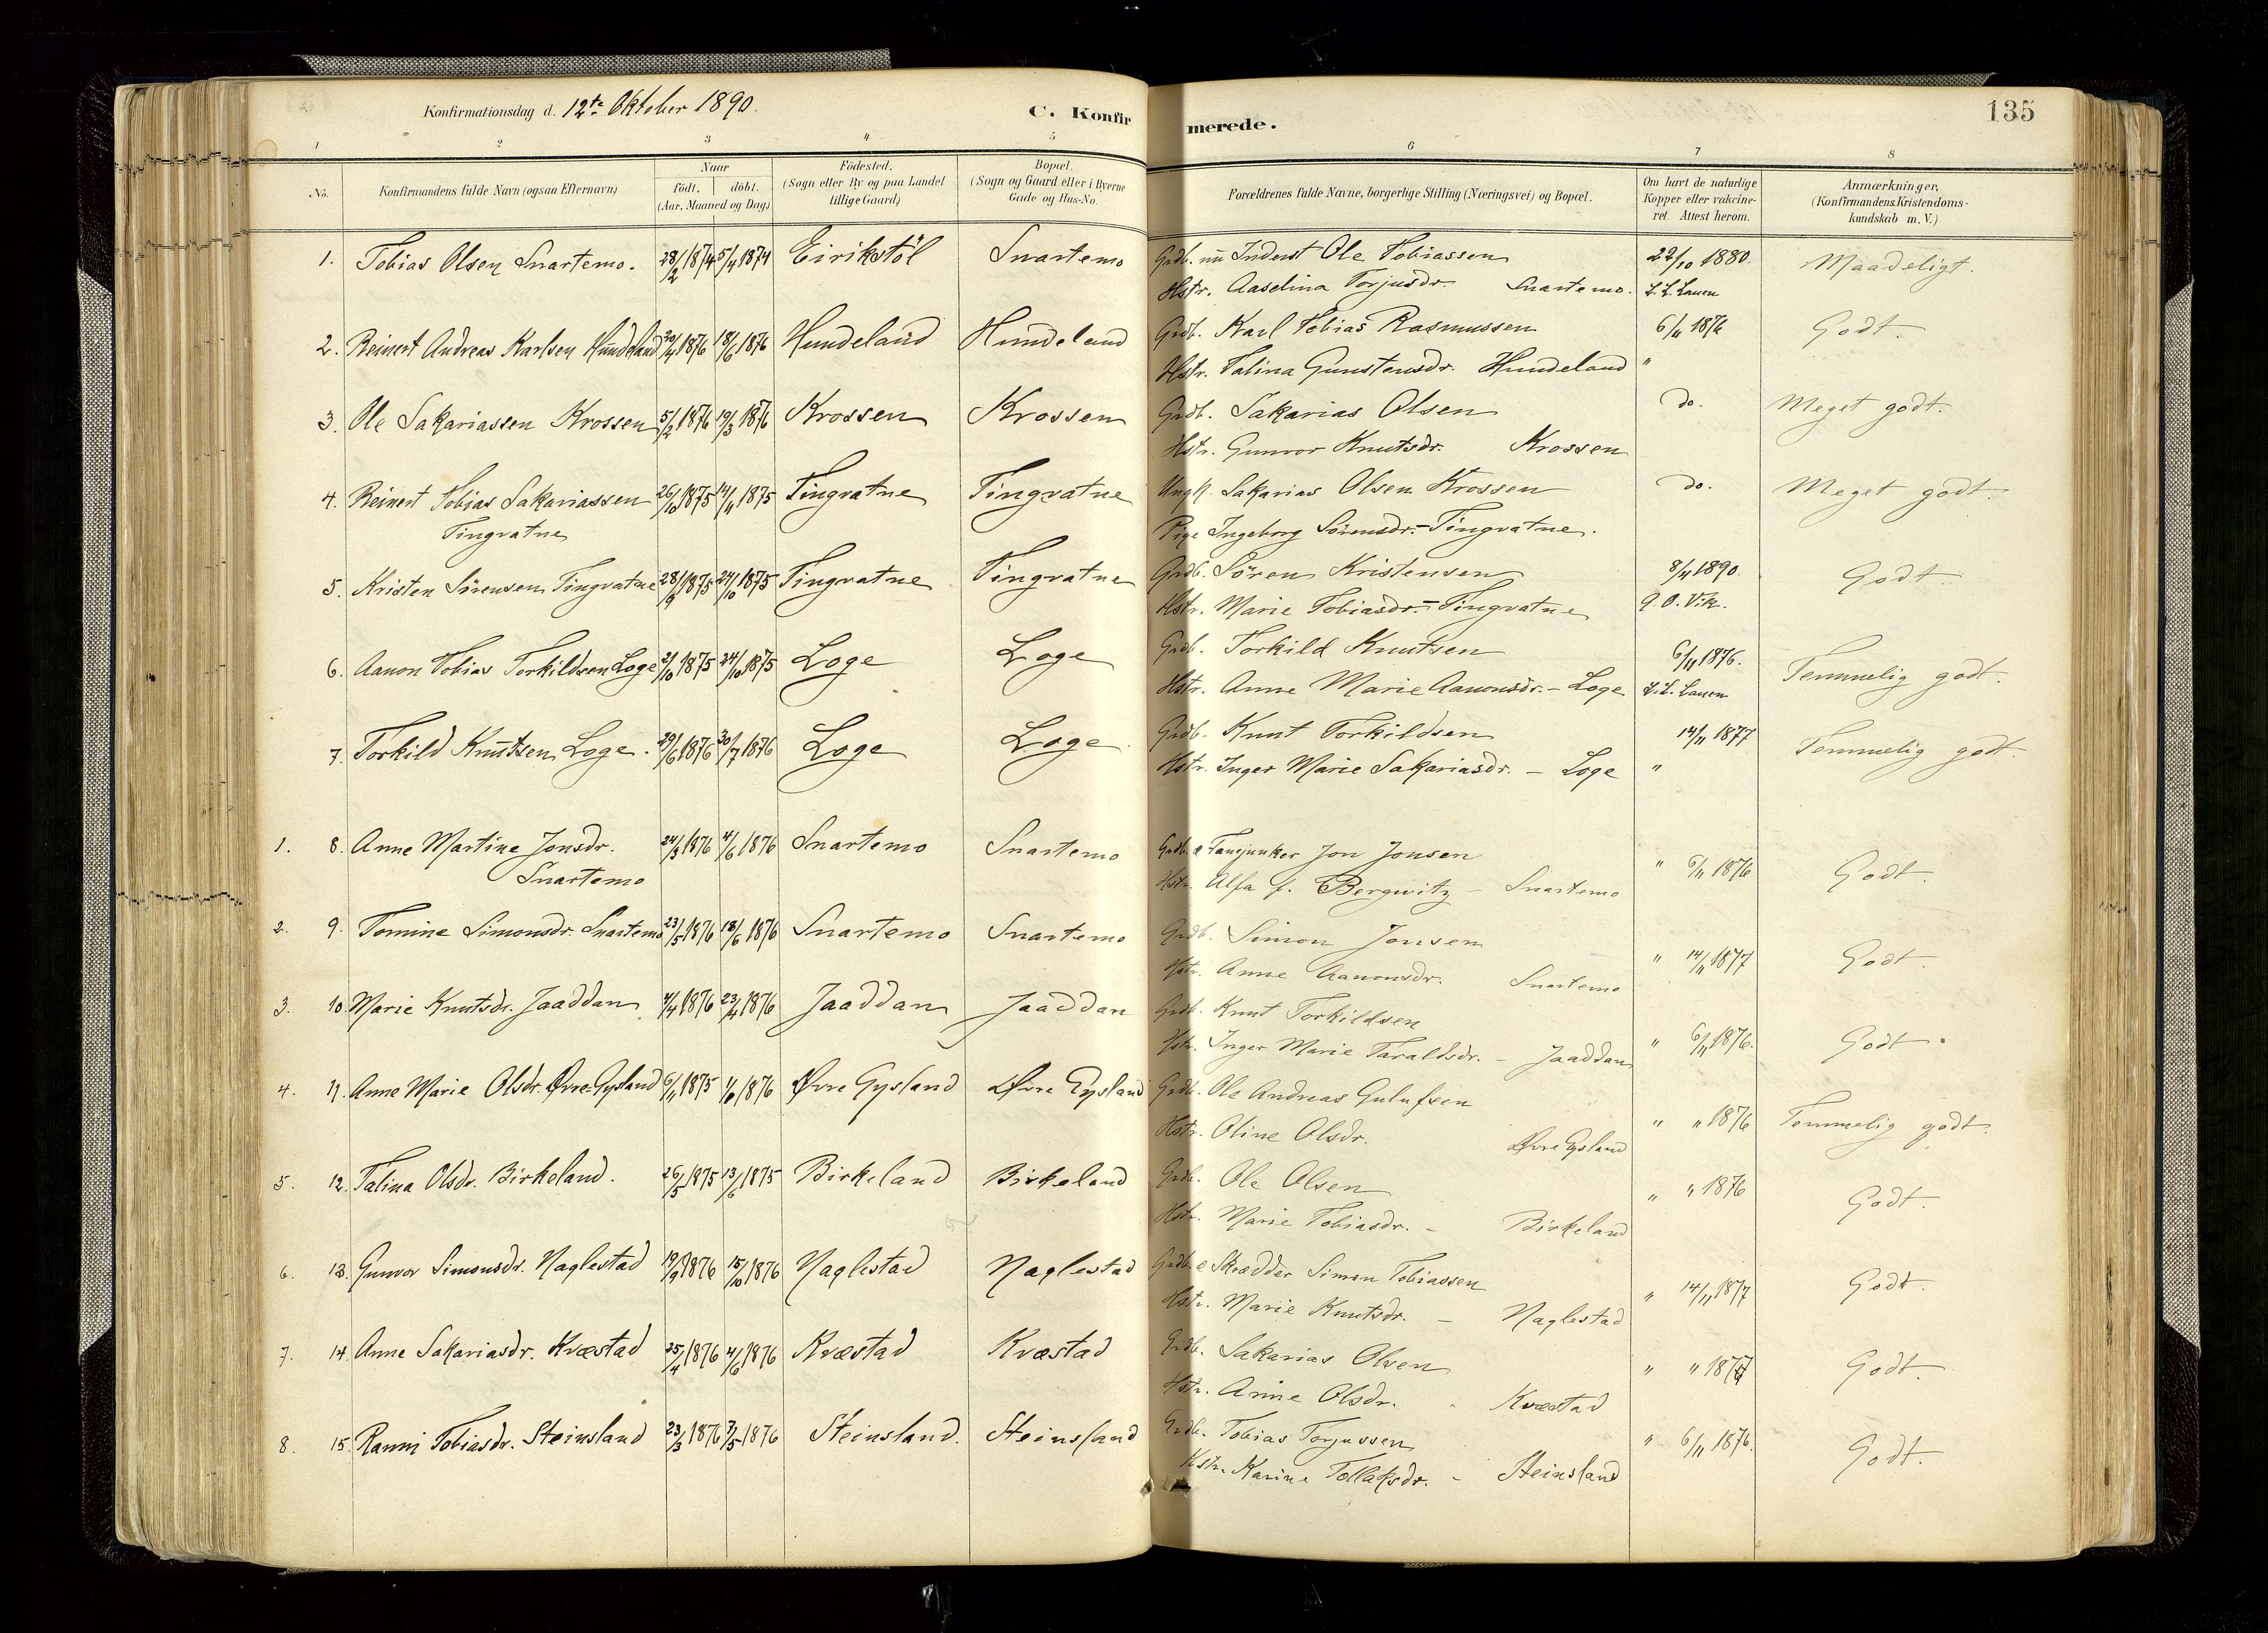 Konfirmationsdag d. 12te Oktober 1890.
C. Konfirmerede.
135
1 2 3 4 5 6 7 8
No. Konfirmandens fulde Navn (ogsaa Efternavn) Naar födt. döbt. (Aar, Maaned og Dag.) Födested. (Sogn eller By og paa Landet tillige Gaard.) Bopæl. (Sogn og Gaard eller i Byerne Gade og Hus-No. Forældrenes fulde Navne, borgerlige Stilling (Næringsvei) og Bopæl. Om havt de naturlige Kopper eller vakcineret. Attest herom. Anmærkninger, (Konfirmandens Kristendomskundskab m. V.)
1. Tobias Olsen Snartemo. 28/2 1874 5/4 1874 Eirikstöl Snartemo Grdb. nu Inderst Ole Tobiassen 22/10 1880. Maadeligt.
Hstr. Aaselina Torjusdr. Snartemo. L. L. Lauen
2. Reinert Andreas Karlsen Hundeland 30/4 1876 18/6 1876 Hundeland Hundeland Grdb. Karl Tobias Rasmussen 6/11 1876 Godt.
Hstr. Talina Gunstensdr. Hundeland "
3. Ole Sakariassen Krossen 5/2 1876 19/3 1876 Krossen Krossen Grdb. Sakarias Olsen do. Meget godt.
Hstr. Gunvor Knutsdr. Krossen
4. Reinert Tobias Sakariassen 26/10 1875 14/11 1875 Tingvatne Tingvatne Ungk. Sakarias Olsen Krossen do. Meget godt.
Tingvatne Pige Ingeborg Sörensdr. - Tingvatne.
5. Kristen Sörensen Tingvatne 28/9 1875 24/10 1875 Tingvatne Tingvatne Grdb. Sören Kristensen 8/4 1890. Godt.
Hstr. Marie Tobiasdr. - Tingvatne O. Vik.
6. Aanon Tobias Torkildsen Loge 2/10 1875 24/10 1875 Loge Loge Grdb. Torkild Knutsen 6/11 1876. Temmelig godt.
Hstr. Anne Marie Aanonsdr. - Loge L. L. Lauen
7. Torkild Knutsen Loge. 29/6 1876 30/7 1876 Loge Loge Grdb. Knut Torkildsen 14/11 1877 Temmelig godt.
Hstr. Inger Marie Sakariasdr. - Loge "
1. 8. Anne Martine Jonsdr. 24/3 1876 4/6 1876 Snartemo Snartemo Grdb. & Fanejunker Jon Jonsen " 6/11 1876 Godt.
Snartemo Hstr. Alfa f. Bergwitz - Snartemo
2. 9. Tomine Simonsdr. Snartemo 23/5 1876 18/6 1876 Snartemo Snartemo Grdb. Simon Jonsen " 14/11 1877 Godt.
Hstr. Anne Aanonsdr. Snartemo
3. 10. Marie Knutsdr. Jaaddan 4/4 1876 23/4 1876 Jaaddan Jaaddan Grdb. Knut Torkildsen " 6/11 1876. Godt.
Hstr. Inger Marie Taraldsdr. - Jaaddan
4. 11. Anne Marie Olsdr. Øvre-Gysland 6/11 1875 1/6 1876 Øvre Gysland Øvre Gysland Grdb. Ole Andreas Gulufsen " " 1876 Temmelig godt.
Hstr. Oline Olsdr. Øvre Gysland
5. 12. Talina Olsdr. Birkeland. 26/5 1875 13/6 1875 Birkeland Birkeland Grdb. Ole Olsen " " 1876 Godt.
Hstr. Marie Tobiasdr. - Birkeland
6. 13. Gunvor Simonsdr. Naglestad 19/9 1876 15/10 1876 Naglestad Naglestad Grdb. & Skrædder Simon Tobiassen " 14/11 1877 Godt.
Hstr. Marie Knutsdr. - Naglestad
7. 14. Anne Sakariasdr. Kvæstad 25/4 1876 4/6 1876 Kvæstad Kvæstad Grdb. Sakarias Olsen " " Godt.
Hstr. Anne Olsdr. - Kvæstad
8. 15. Ranni Tobiasdr. Steinsland 23/3 1876 7/5 1876 Steinsland. Steinsland Grdb. Tobias Torjussen " 6/11 1876. Godt.
Hstr. Karine Tollaksdr. - Steinsland